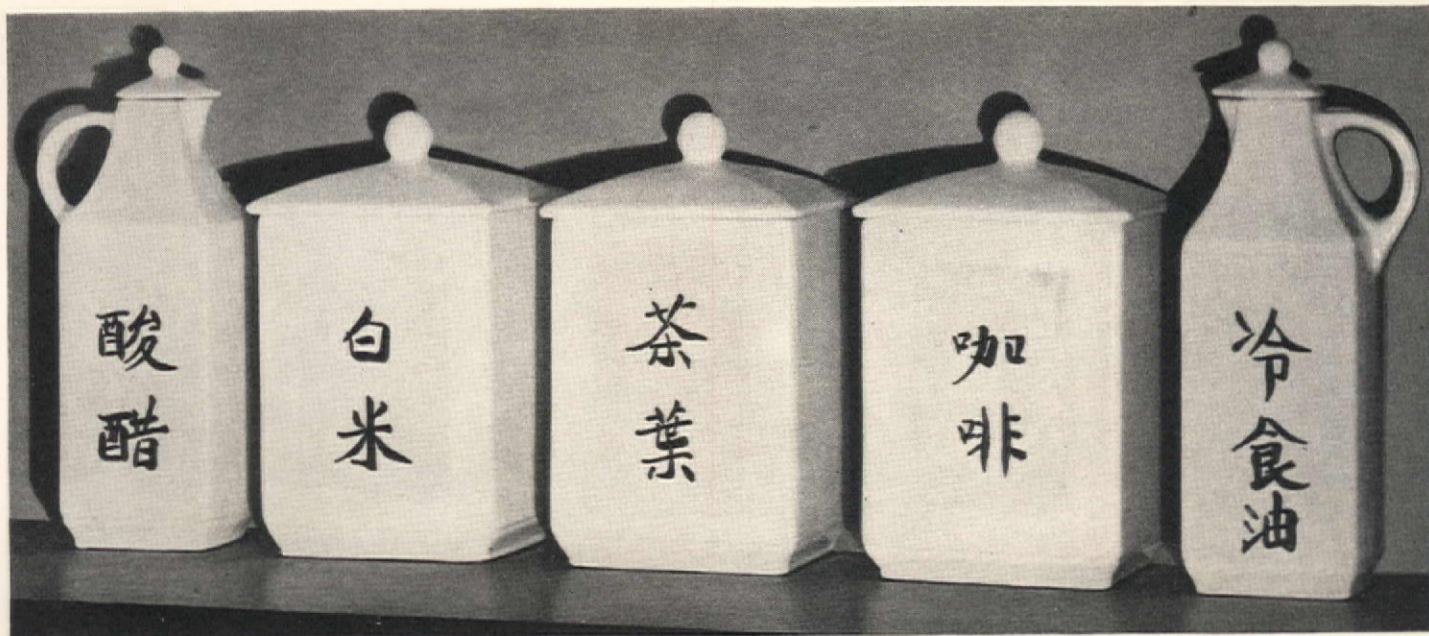 酸醋
白米
茶葉
咖啡
冷食油